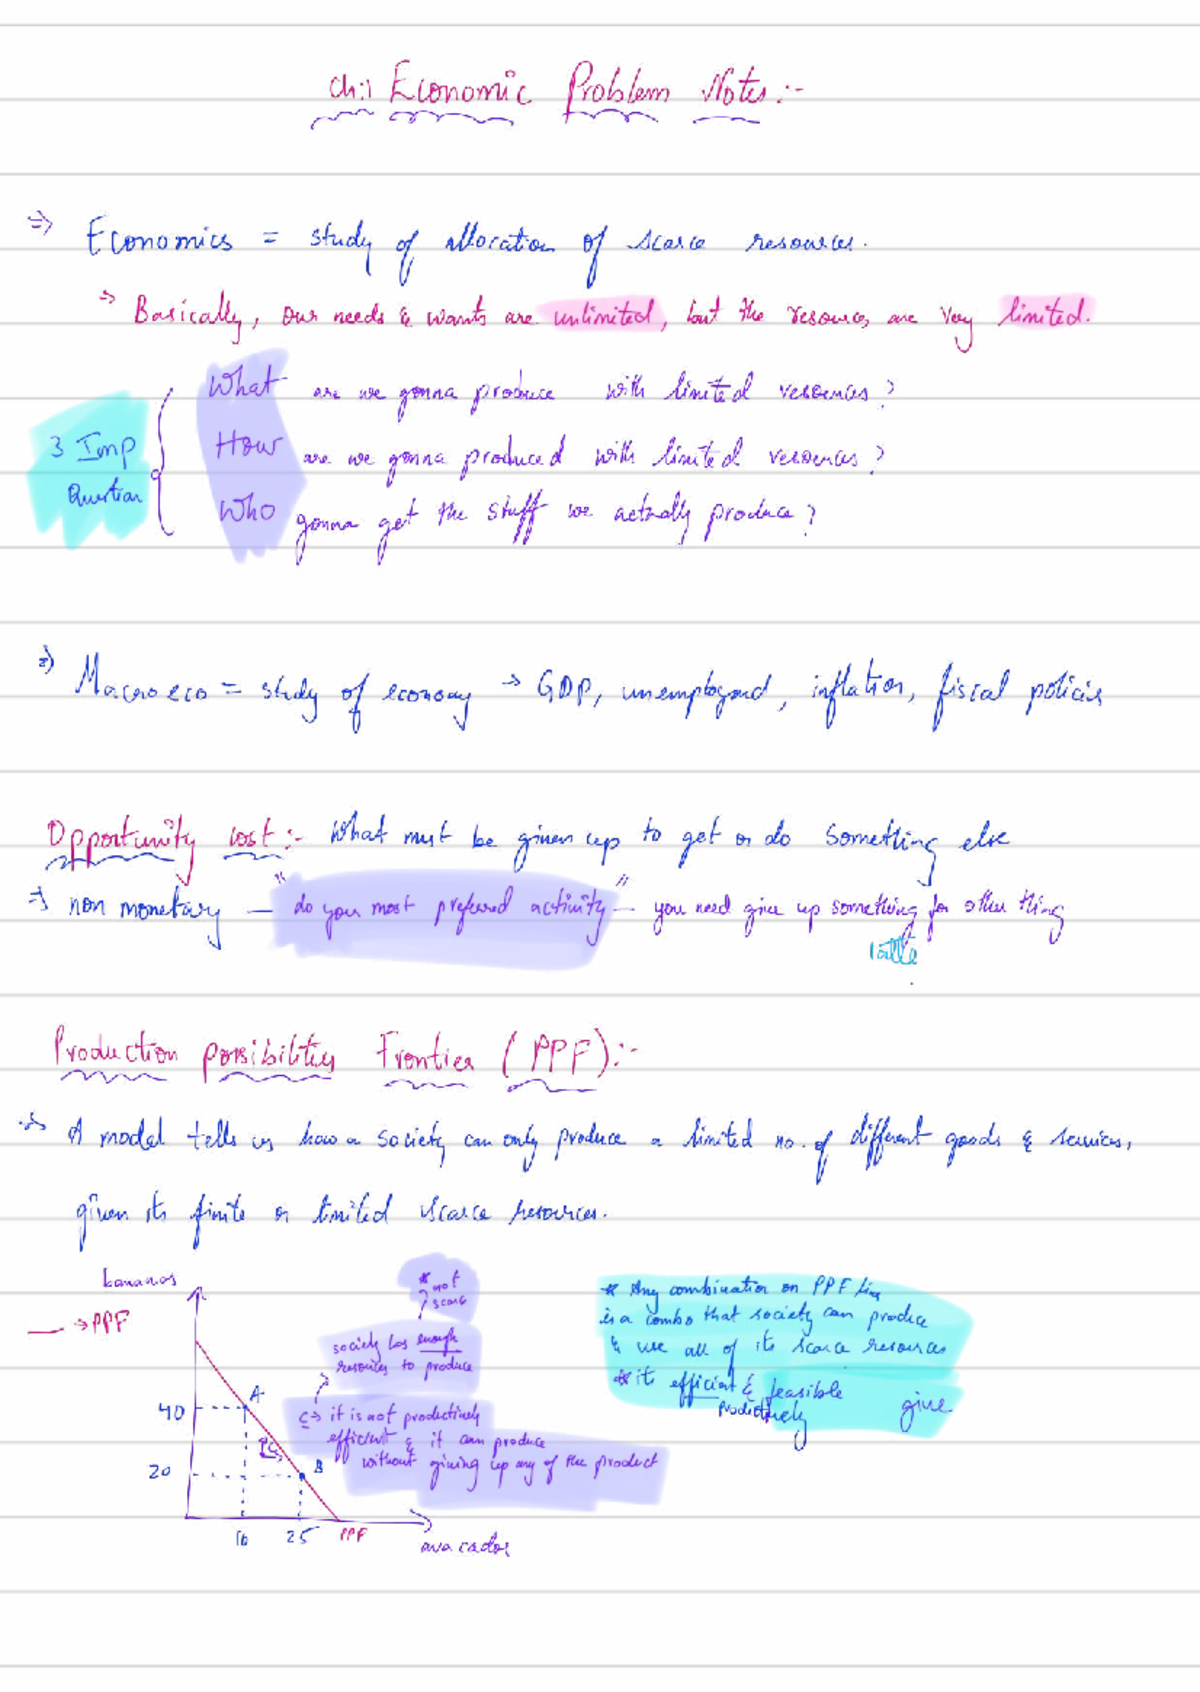 Ch:1 Economic Problem Notes:-
⇒ Economics = study of allocation of scarce resources.
→ Basically, our needs & wants are unlimited, but the resources are very limited.
3 Imp Question
What are we gonna produce with limited resources?
How are we gonna produced with limited resources?
Who gonna get the stuff we actually produce?
⇒ Macro eco = study of economy → GDP, unemployed, inflation, fiscal policies
Opportunity cost:- What must be given up to get or do something else
→ non monetary — "do you most preferred activity" — you need give up something for other thing
Production possibility Frontier (PPF):-
→ A model tells us how a society can only produce a limited no. of different goods & services,
given its finite or limited scarce resources.
bananas
→ PPF
* not
scarce
society has enough
resources to produce
C → it is not productively
efficient & it can produce
without giving up any of the product
* Any combination on PPF line
is a combo that society can produce
& use all of its scarce resources
* its efficient & feasible
productively
give
A
40
C
20
B
10
25
PPF
avacados